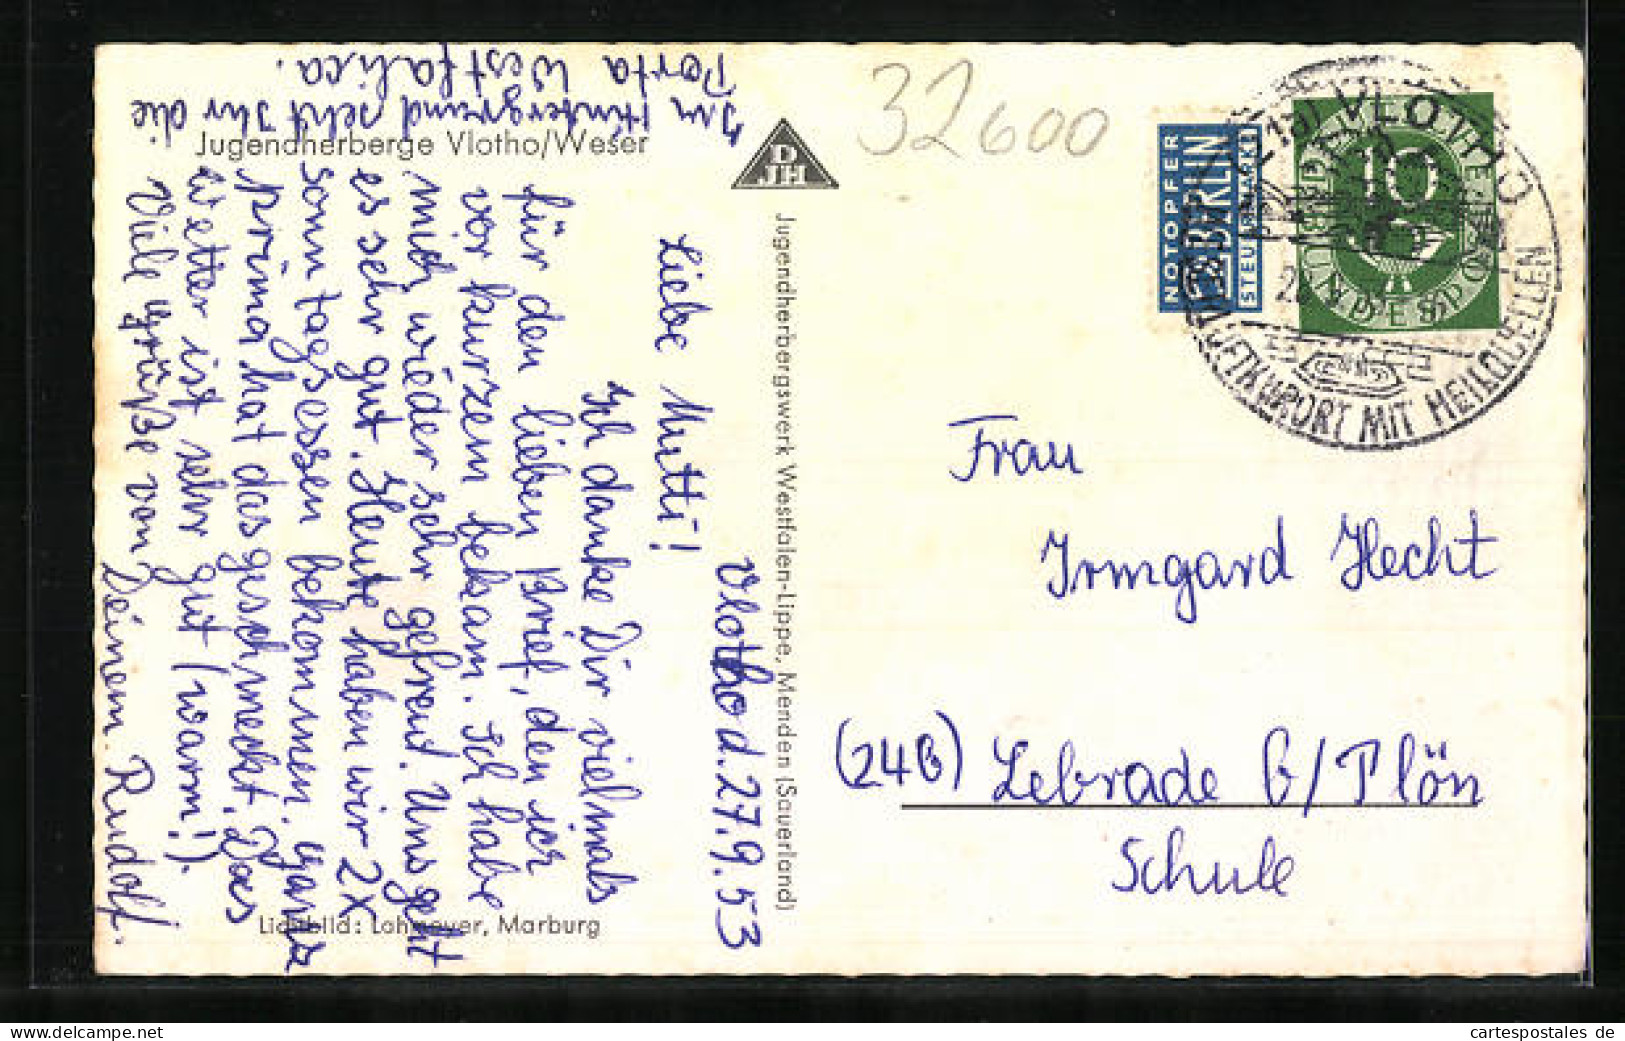 Jugendherberge Vlotho/Weser
DJH
Jugendherbergswerk Westfalen-Lippe, Menden (Sauerland)
Lichtbild: Lohmeyer, Marburg
32600
Vlotho d. 27.9.53
Liebe Mutti!
Ich danke Dir vielmals
für den lieben Brief, den ich
vor kurzem bekam. Ich habe
mich wieder sehr gefreut. Uns geht
es sehr gut. Heute haben wir 2x
sonntagsessen bekommen. Ganz
prima hat das geschmeckt. Das
Wetter ist sehr gut (warm!).
Viele Grüße von
Deinem Rudolf.
Im Hintergrund seht Ihr die
Porta Westfalica.
NOTOPFER
2 BERLIN
STEUERMARKE
10
DEUTSCHE BUNDESPOST
VLOTHO
LUFTKURORT MIT HEILQUELLEN
Frau
Irmgard Hecht
(24B) Lebrade b/Plön
Schule
cartespostales de